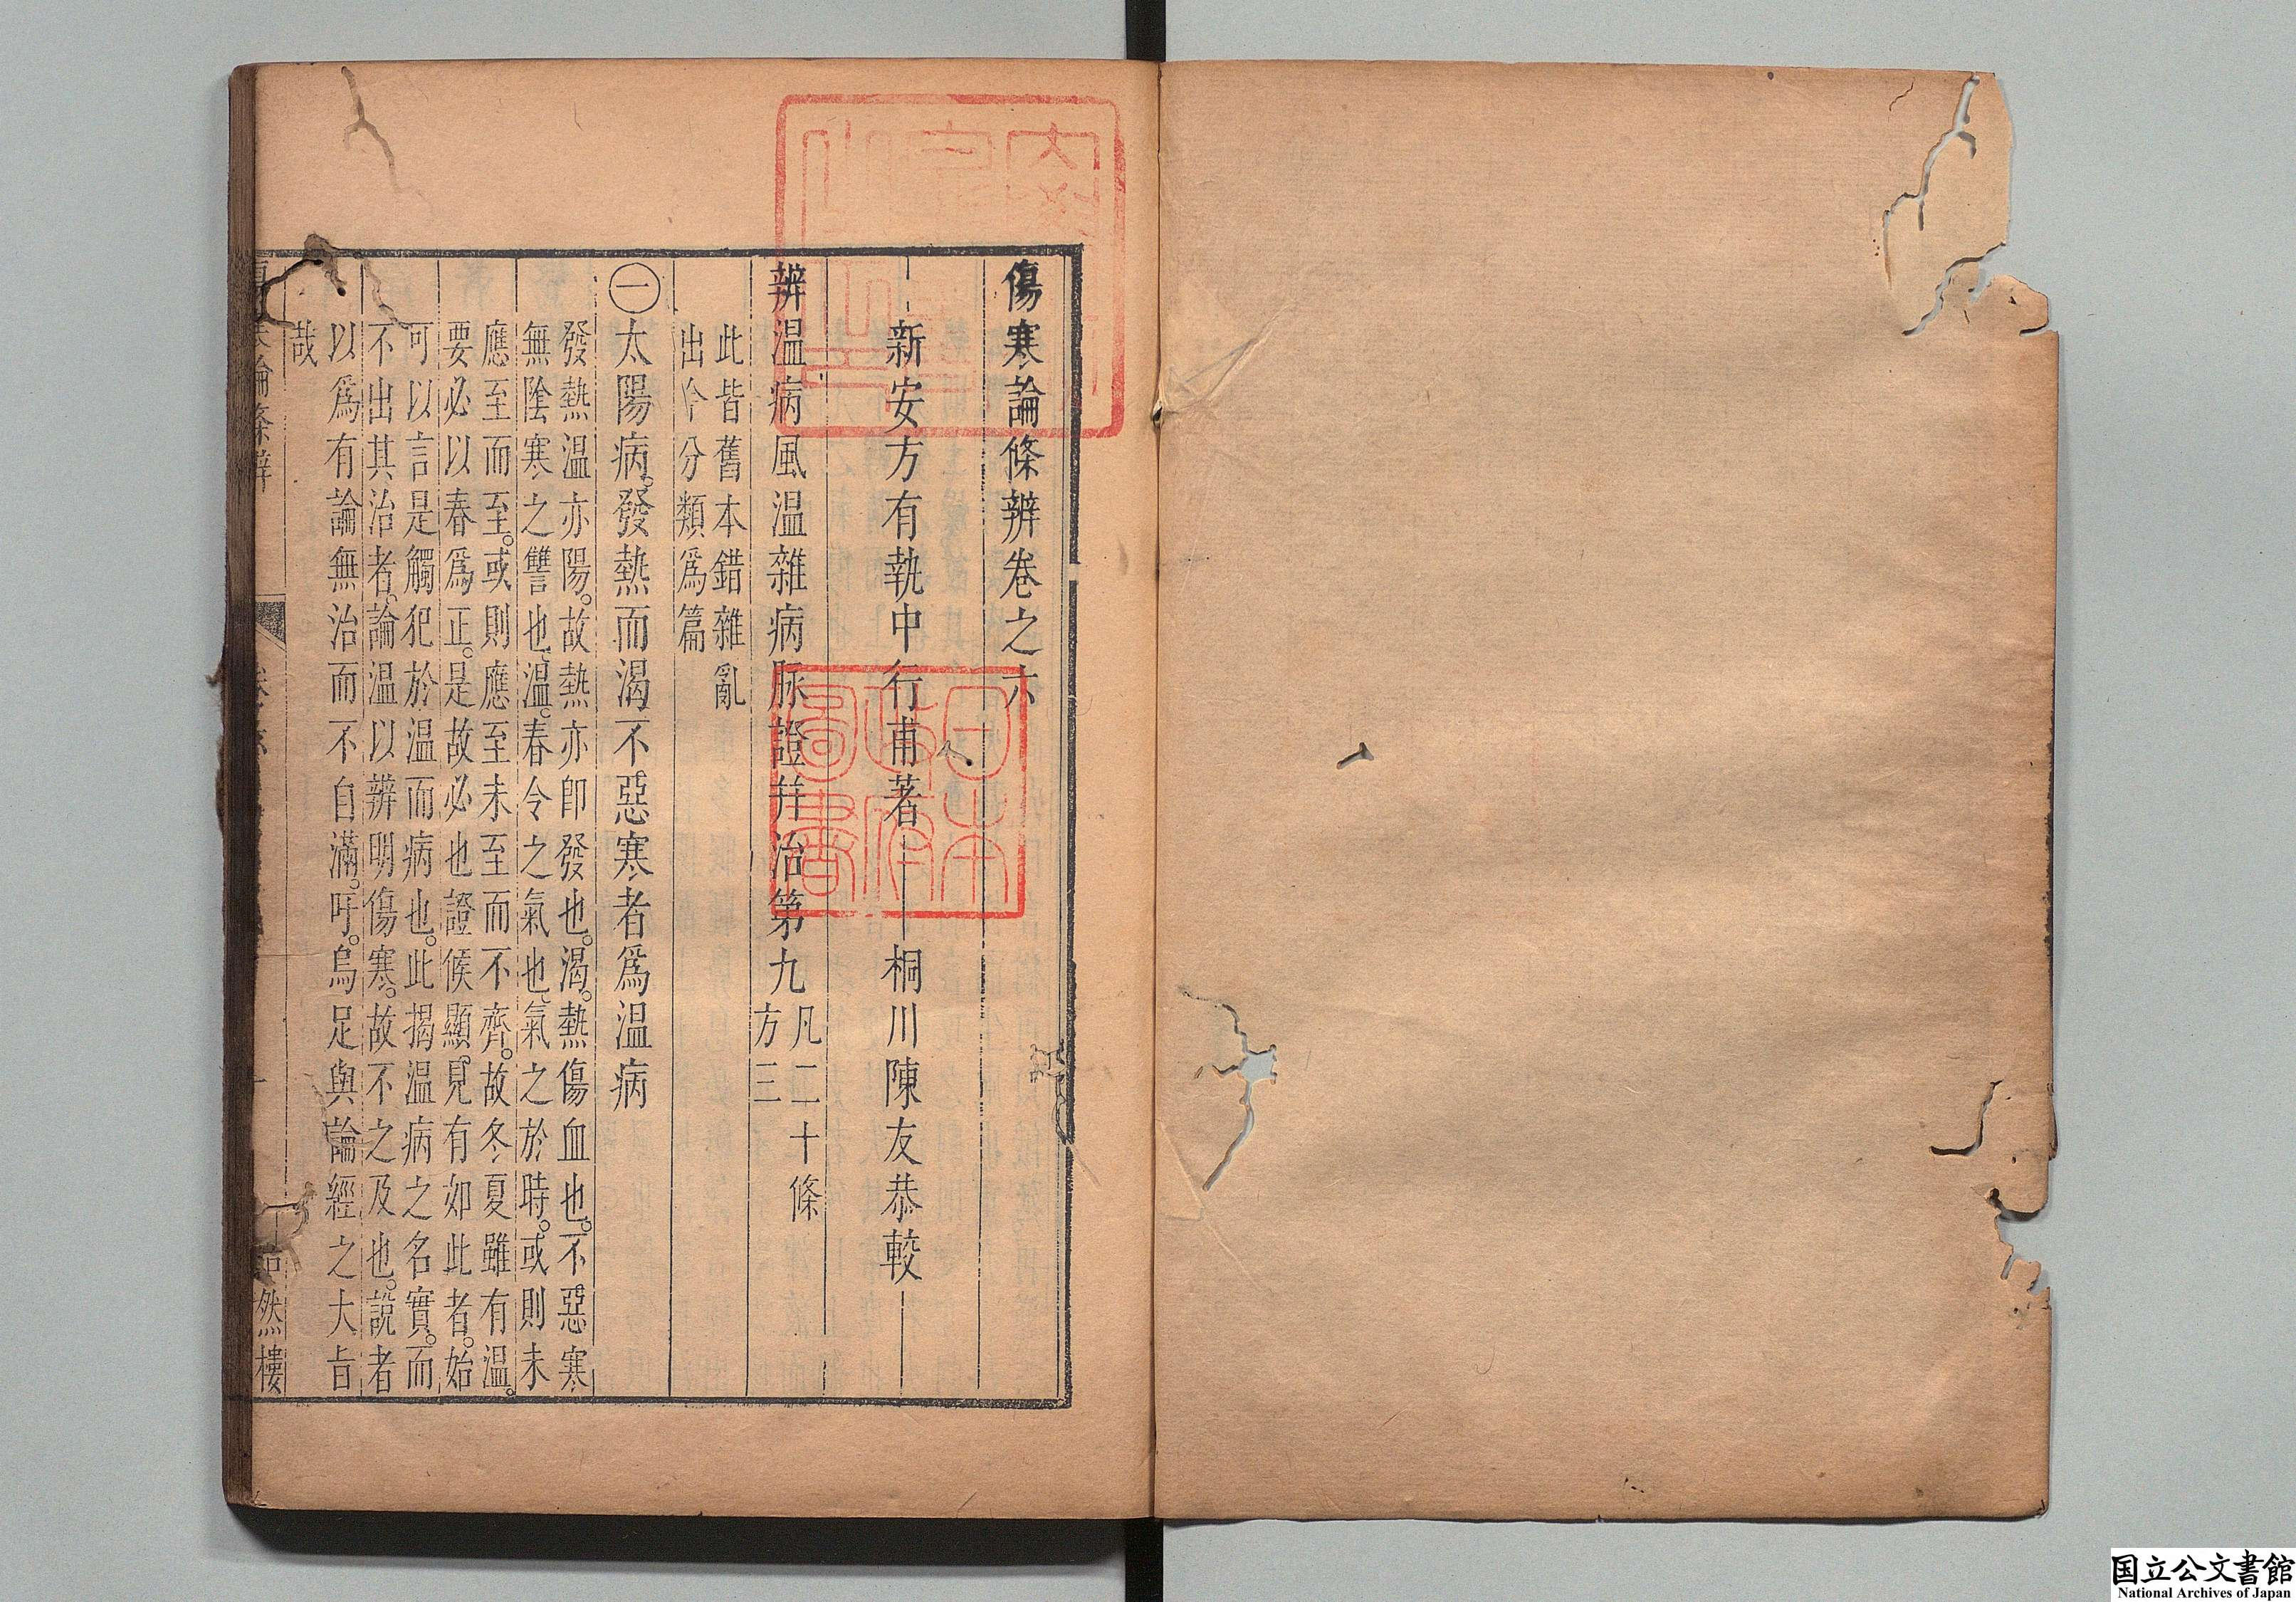 傷寒論條辨卷之六
新安方有執中行甫著　桐川陳友恭較
辨温病風温雜病脉證并治第九
凡二十條
方三
此皆舊本錯雜亂
出今分類爲篇
㊀太陽病。發熱而渴。不惡寒者爲温病
發熱温亦陽。故熱亦卽發也。渴。熱傷血也。不惡寒
無陰寒之讐也。温。春令之氣也。氣之於時。或則未
應至而至。或則應至未至而不齊。故冬夏雖有温。
要必以春爲正。是故必也證候顯。見有如此者。始
可以言是觸犯於温而病也。此揭温病之名實。而
不出其治者。論温以辨明傷寒。故不之及也。說者
以爲有論無治而不自滿。吁。烏足與論經之大旨
哉
論條辨
然樓
日本政府圖書
国立公文書館
National Archives of Japan